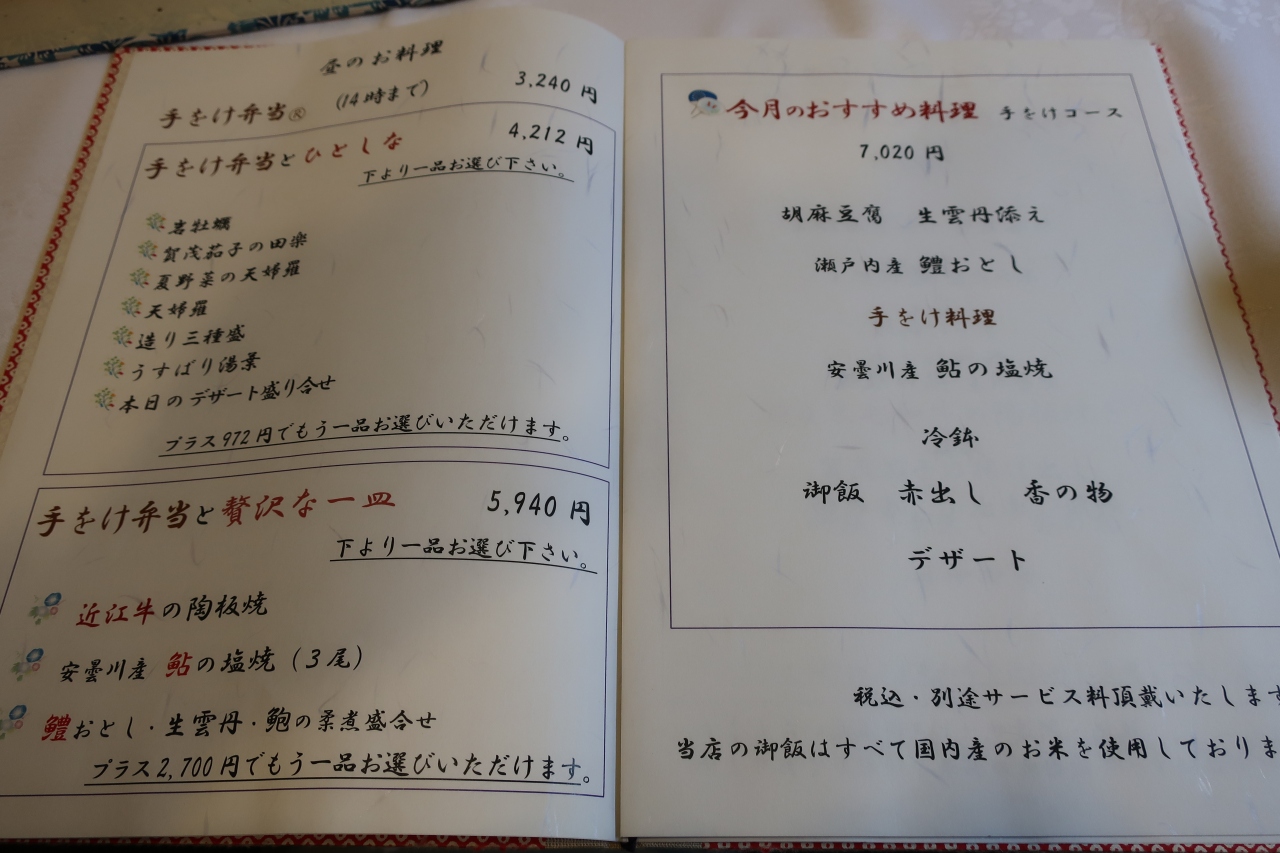 昼のお料理
(14時まで)
手をけ弁当® 3,240 円
手をけ弁当とひとしな 4,212 円
下より一品お選び下さい。
岩牡蠣
賀茂茄子の田楽
夏野菜の天婦羅
天婦羅
造り三種盛
うすばり湯葉
本日のデザート盛り合せ
プラス972円でもう一品お選びいただけます。
手をけ弁当と贅沢な一皿 5,940 円
下より一品お選び下さい。
近江牛の陶板焼
安曇川産 鮎の塩焼(3尾)
鱧おとし・生雲丹・鮑の柔煮盛合せ
プラス2,700円でもう一品お選びいただけます。
今月のおすすめ料理 手をけコース
7,020 円
胡麻豆腐 生雲丹添え
瀬戸内産 鱧おとし
手をけ料理
安曇川産 鮎の塩焼
冷鉢
御飯 赤出し 香の物
デザート
税込・別途サービス料頂戴いたします
当店の御飯はすべて国内産のお米を使用しておりま